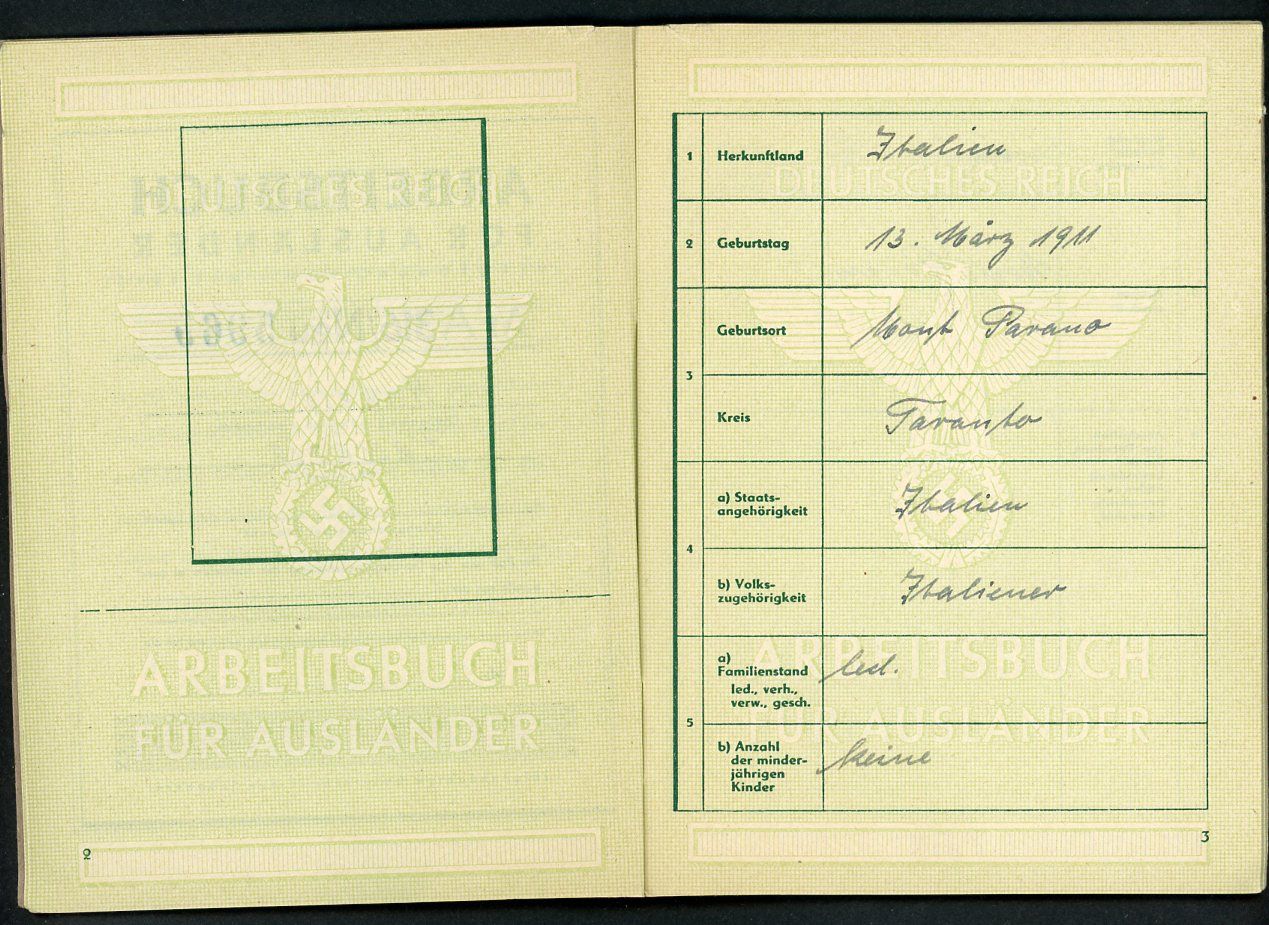 DEUTSCHES REICH
ARBEITSBUCH
FÜR AUSLÄNDER
2
DEUTSCHES REICH
1 Herkunftland Italien
2 Geburtstag 13. März 1911
3
Geburtsort Mont Parano
Kreis Taranto
4
a) Staats-
angehörigkeit Italien
b) Volks-
zugehörigkeit Italiener
5
a)
Familienstand led.
led., verh.,
verw., gesch.
b) Anzahl
der minder-
jährigen
Kinder keine
ARBEITSBUCH
FÜR AUSLÄNDER
3